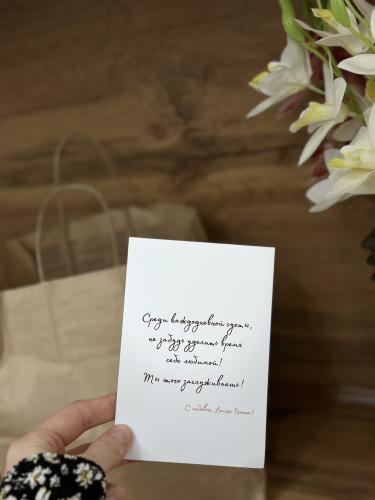 Среди каждодневной суеты,
не забудь уделить время
себе любимой!
Ты этого заслуживаешь!
С любовью,